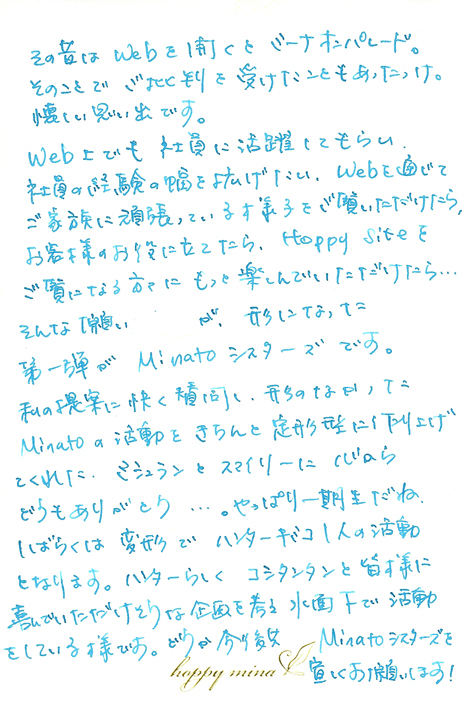 その昔は Webを開くと ミーナオンパレード。
そのことで ご批判を受けたこともあったっけ。
懐しい思い出です。
Web上でも 社員に活躍してもらい、
社員の経験の幅を拡げたい、Webを通じて
ご家族に頑張っている様子をご覧いただけたら、
お客様のお役に立てたら、Hoppy Siteを
ご覧になる方々にもっと楽しんでいただけたら…
そんな願いが、形になった
第一弾が Minatoシスターズ です。
私の提案に快く賛同し、形のなかった
Minatoの活動を きちんと定形型に仕上げ
てくれた、ミシュランとスマイリーに 心から
どうもありがとう …。やっぱり一期生だね、
しばらくは 変形で ハンターキドコ1人の活動
となります。ハンターらしく コシタンタンと皆様に
喜んでいただけそうな企画を考え 水面下で活動
をしている様です。どうか今後共 Minatoシスターズを
宜しくお願いします!
hoppy mina